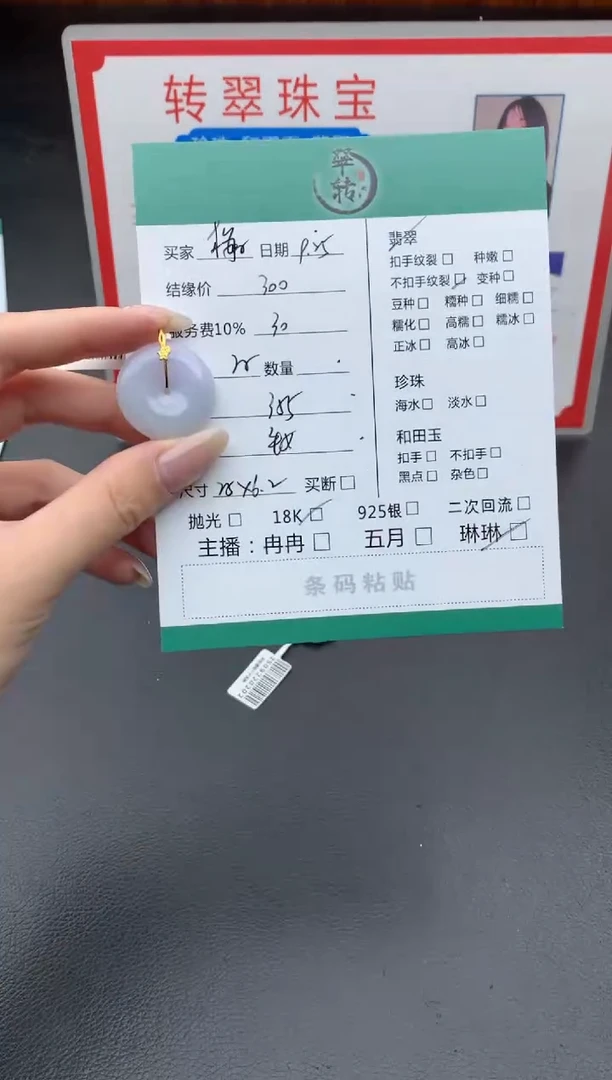 转翠珠宝
翠转
买家 梅 日期 9.25
结缘价 300
服务费10% 30
数量
385
尺寸 28×6.2 买断□
翡翠
扣手纹裂□ 种嫩□
不扣手纹裂□ 变种□
豆种□ 糯种□ 细糯□
糯化□ 高糯□ 糯冰□
正冰□ 高冰□
珍珠
海水□ 淡水□
和田玉
扣手□ 不扣手□
黑点□ 杂色□
抛光□ 18K□ 925银□ 二次回流□
主播：冉冉□ 五月□ 琳琳□
条码粘贴